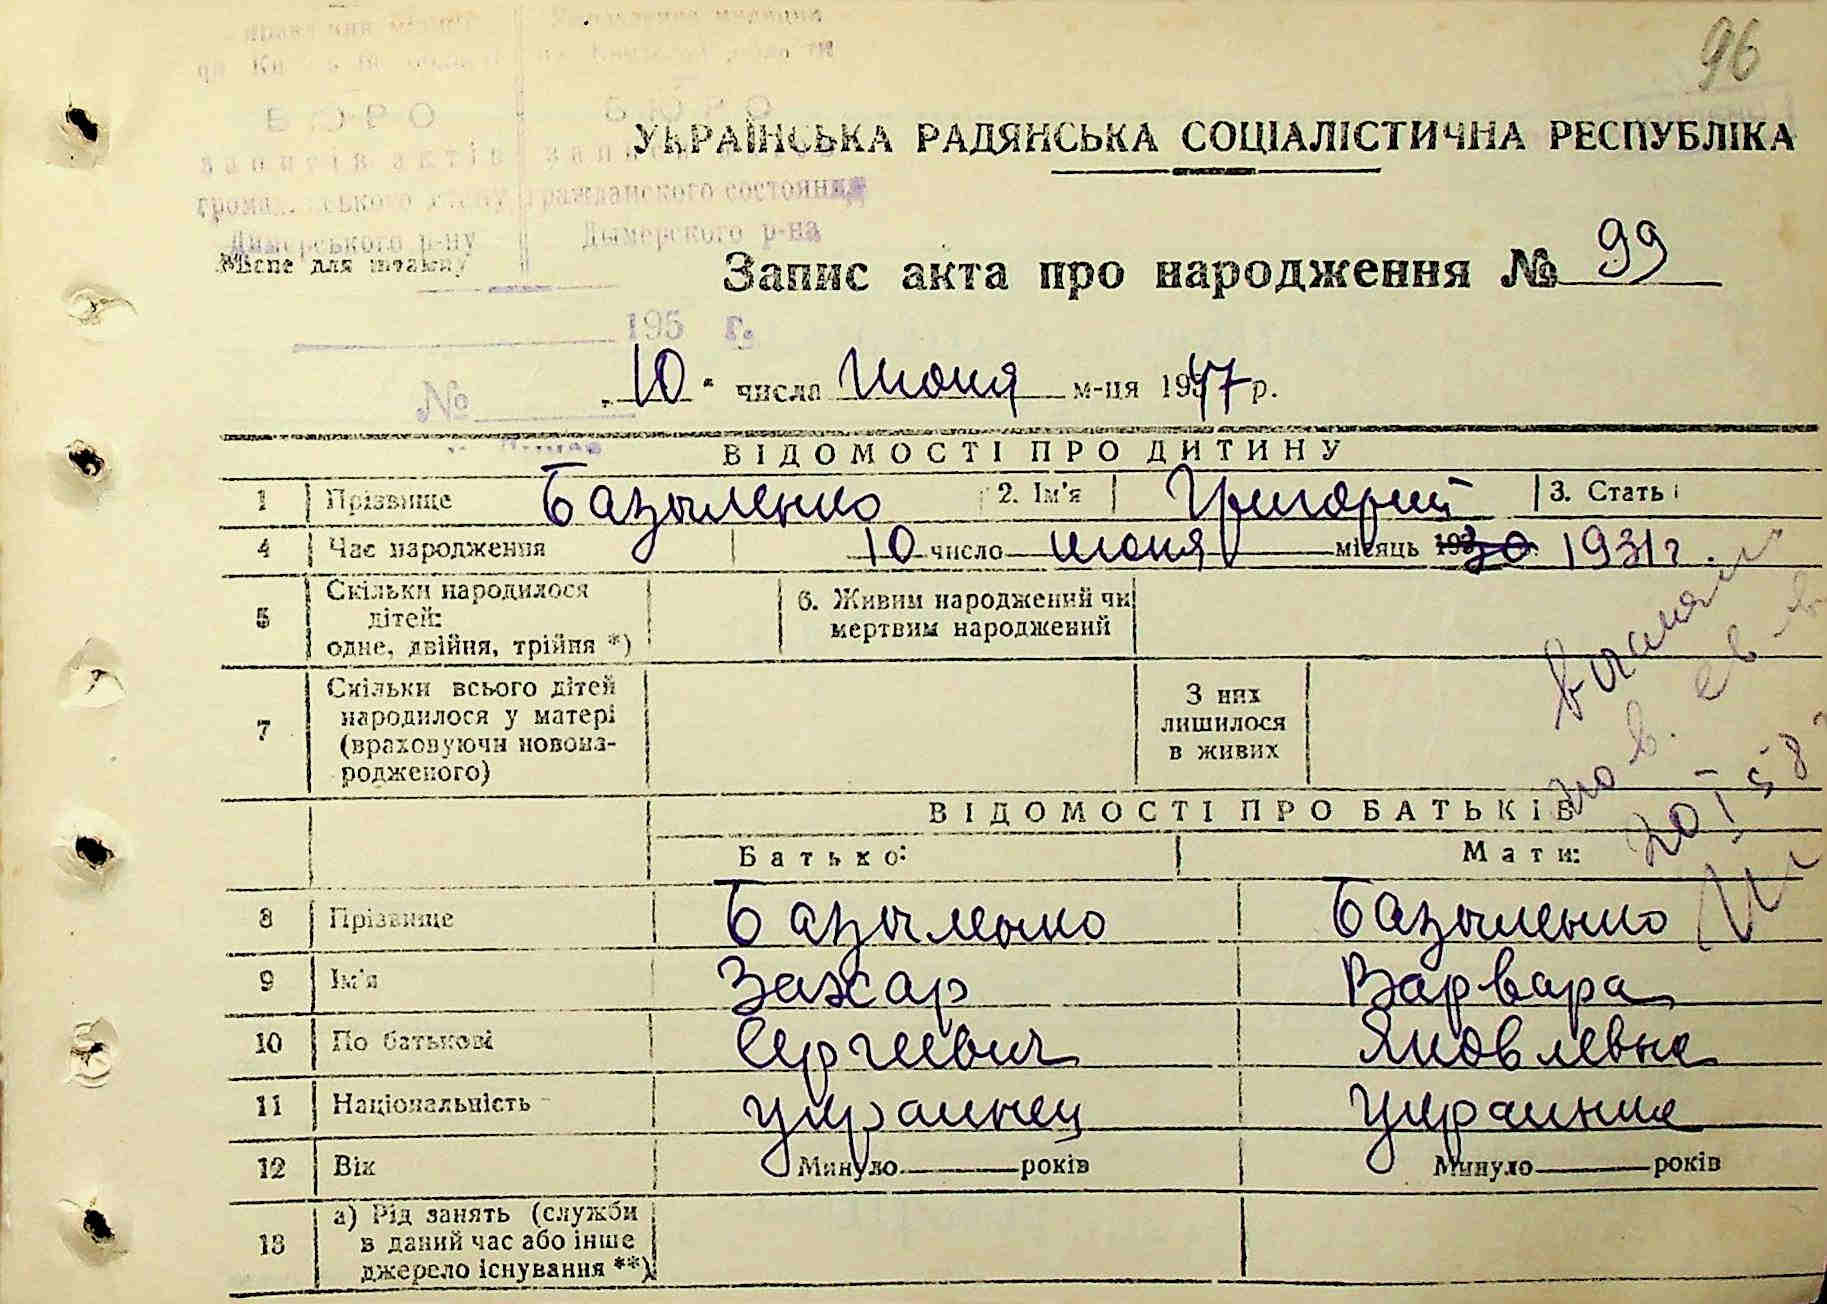 96
БЮРО БЮРО
записів актів
громадянського стану гражданского состояния
Димерського р-ну Дымерского р-на
УКРАЇНСЬКА РАДЯНСЬКА СОЦІАЛІСТИЧНА РЕСПУБЛІКА
Місце для штампу
Запис акта про народження № 99
195 г.
№
„10" числа июня м-ця 1947 р.
ВІДОМОСТІ ПРО ДИТИНУ
1 Прізвище Базыленко 2. Ім'я Григорий 3. Стать
4 Час народження 10 число июня місяць 1931 г.
5 Скільки народилося дітей: одне, двійня, трійня *) 6. Живим народжений чи мертвим народжений
7 Скільки всього дітей народилося у матері (враховуючи новонародженого) З них лишилося в живих
ВІДОМОСТІ ПРО БАТЬКІВ
Батько: Мати:
8 Прізвище Базыленко Базыленко
9 Ім'я Захар Варвара
10 По батькові Сергеевич Яковлевна
11 Національність украинец украинка
12 Вік Минуло років Минуло років
13 а) Рід занять (служби в даний час або інше джерело існування **)